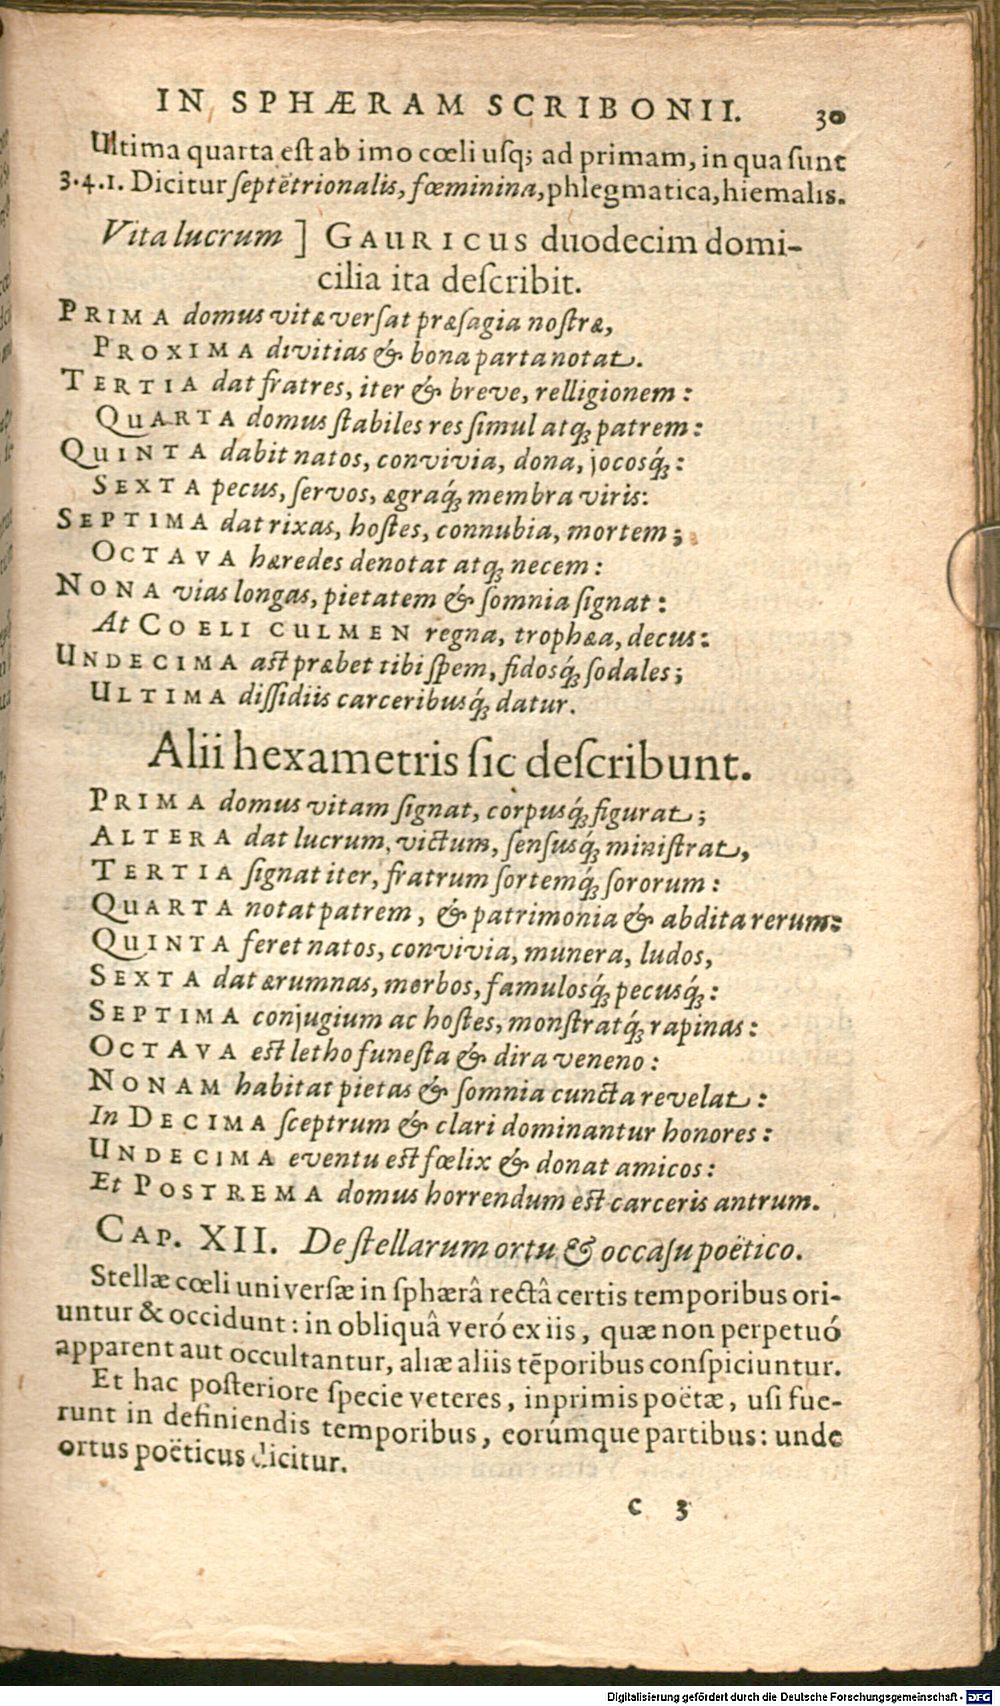 IN SPHÆRAM SCRIBONII. 30
Ultima quarta est ab imo cœli usq; ad primam, in qua sunt
3.4.1. Dicitur septētrionalis, fœminina, phlegmatica, hiemalis.
Vita lucrum ] GAURICUS duodecim domi-
cilia ita describit.
PRIMA domus vitæ versat præsagia nostræ,
PROXIMA divitias & bona parta notat.
TERTIA dat fratres, iter & breve, relligionem:
QUARTA domus stabiles res simul atq; patrem:
QUINTA dabit natos, convivia, dona, jocosq́;:
SEXTA pecus, servos, ægraq́; membra viris:
SEPTIMA dat rixas, hostes, connubia, mortem;
OCTAVA hæredes denotat atq; necem:
NONA vias longas, pietatem & somnia signat:
At COELI CULMEN regna, trophæa, decus:
UNDECIMA ast præbet tibi spem, fidosq́; sodales;
ULTIMA dissidiis carceribusq́; datur.
Alii hexametris sic describunt.
PRIMA domus vitam signat, corpusq́; figurat;
ALTERA dat lucrum, victum, sensusq́; ministrat,
TERTIA signat iter, fratrum sortemq́; sororum:
QUARTA notat patrem, & patrimonia & abdita rerum:
QUINTA feret natos, convivia, munera, ludos,
SEXTA dat ærumnas, morbos, famulosq́; pecusq́;:
SEPTIMA conjugium ac hostes, monstratq́; rapinas:
OCTAVA est letho funesta & dira veneno:
NONAM habitat pietas & somnia cuncta revelat:
In DECIMA sceptrum & clari dominantur honores:
UNDECIMA eventu est fœlix & donat amicos:
Et POSTREMA domus horrendum est carceris antrum.
CAP. XII. De stellarum ortu & occasu poëtico.
Stellæ cœli universæ in sphærâ rectâ certis temporibus ori-
untur & occidunt: in obliquâ veró ex iis, quæ non perpetuó
apparent aut occultantur, aliæ aliis tēporibus conspiciuntur.
Et hac posteriore specie veteres, inprimis poëtæ, usi fue-
runt in definiendis temporibus, eorúmque partibus: unde
ortus poëticus dicitur.
C 3
Digitalisierung gefördert durch die Deutsche Forschungsgemeinschaft - DFG